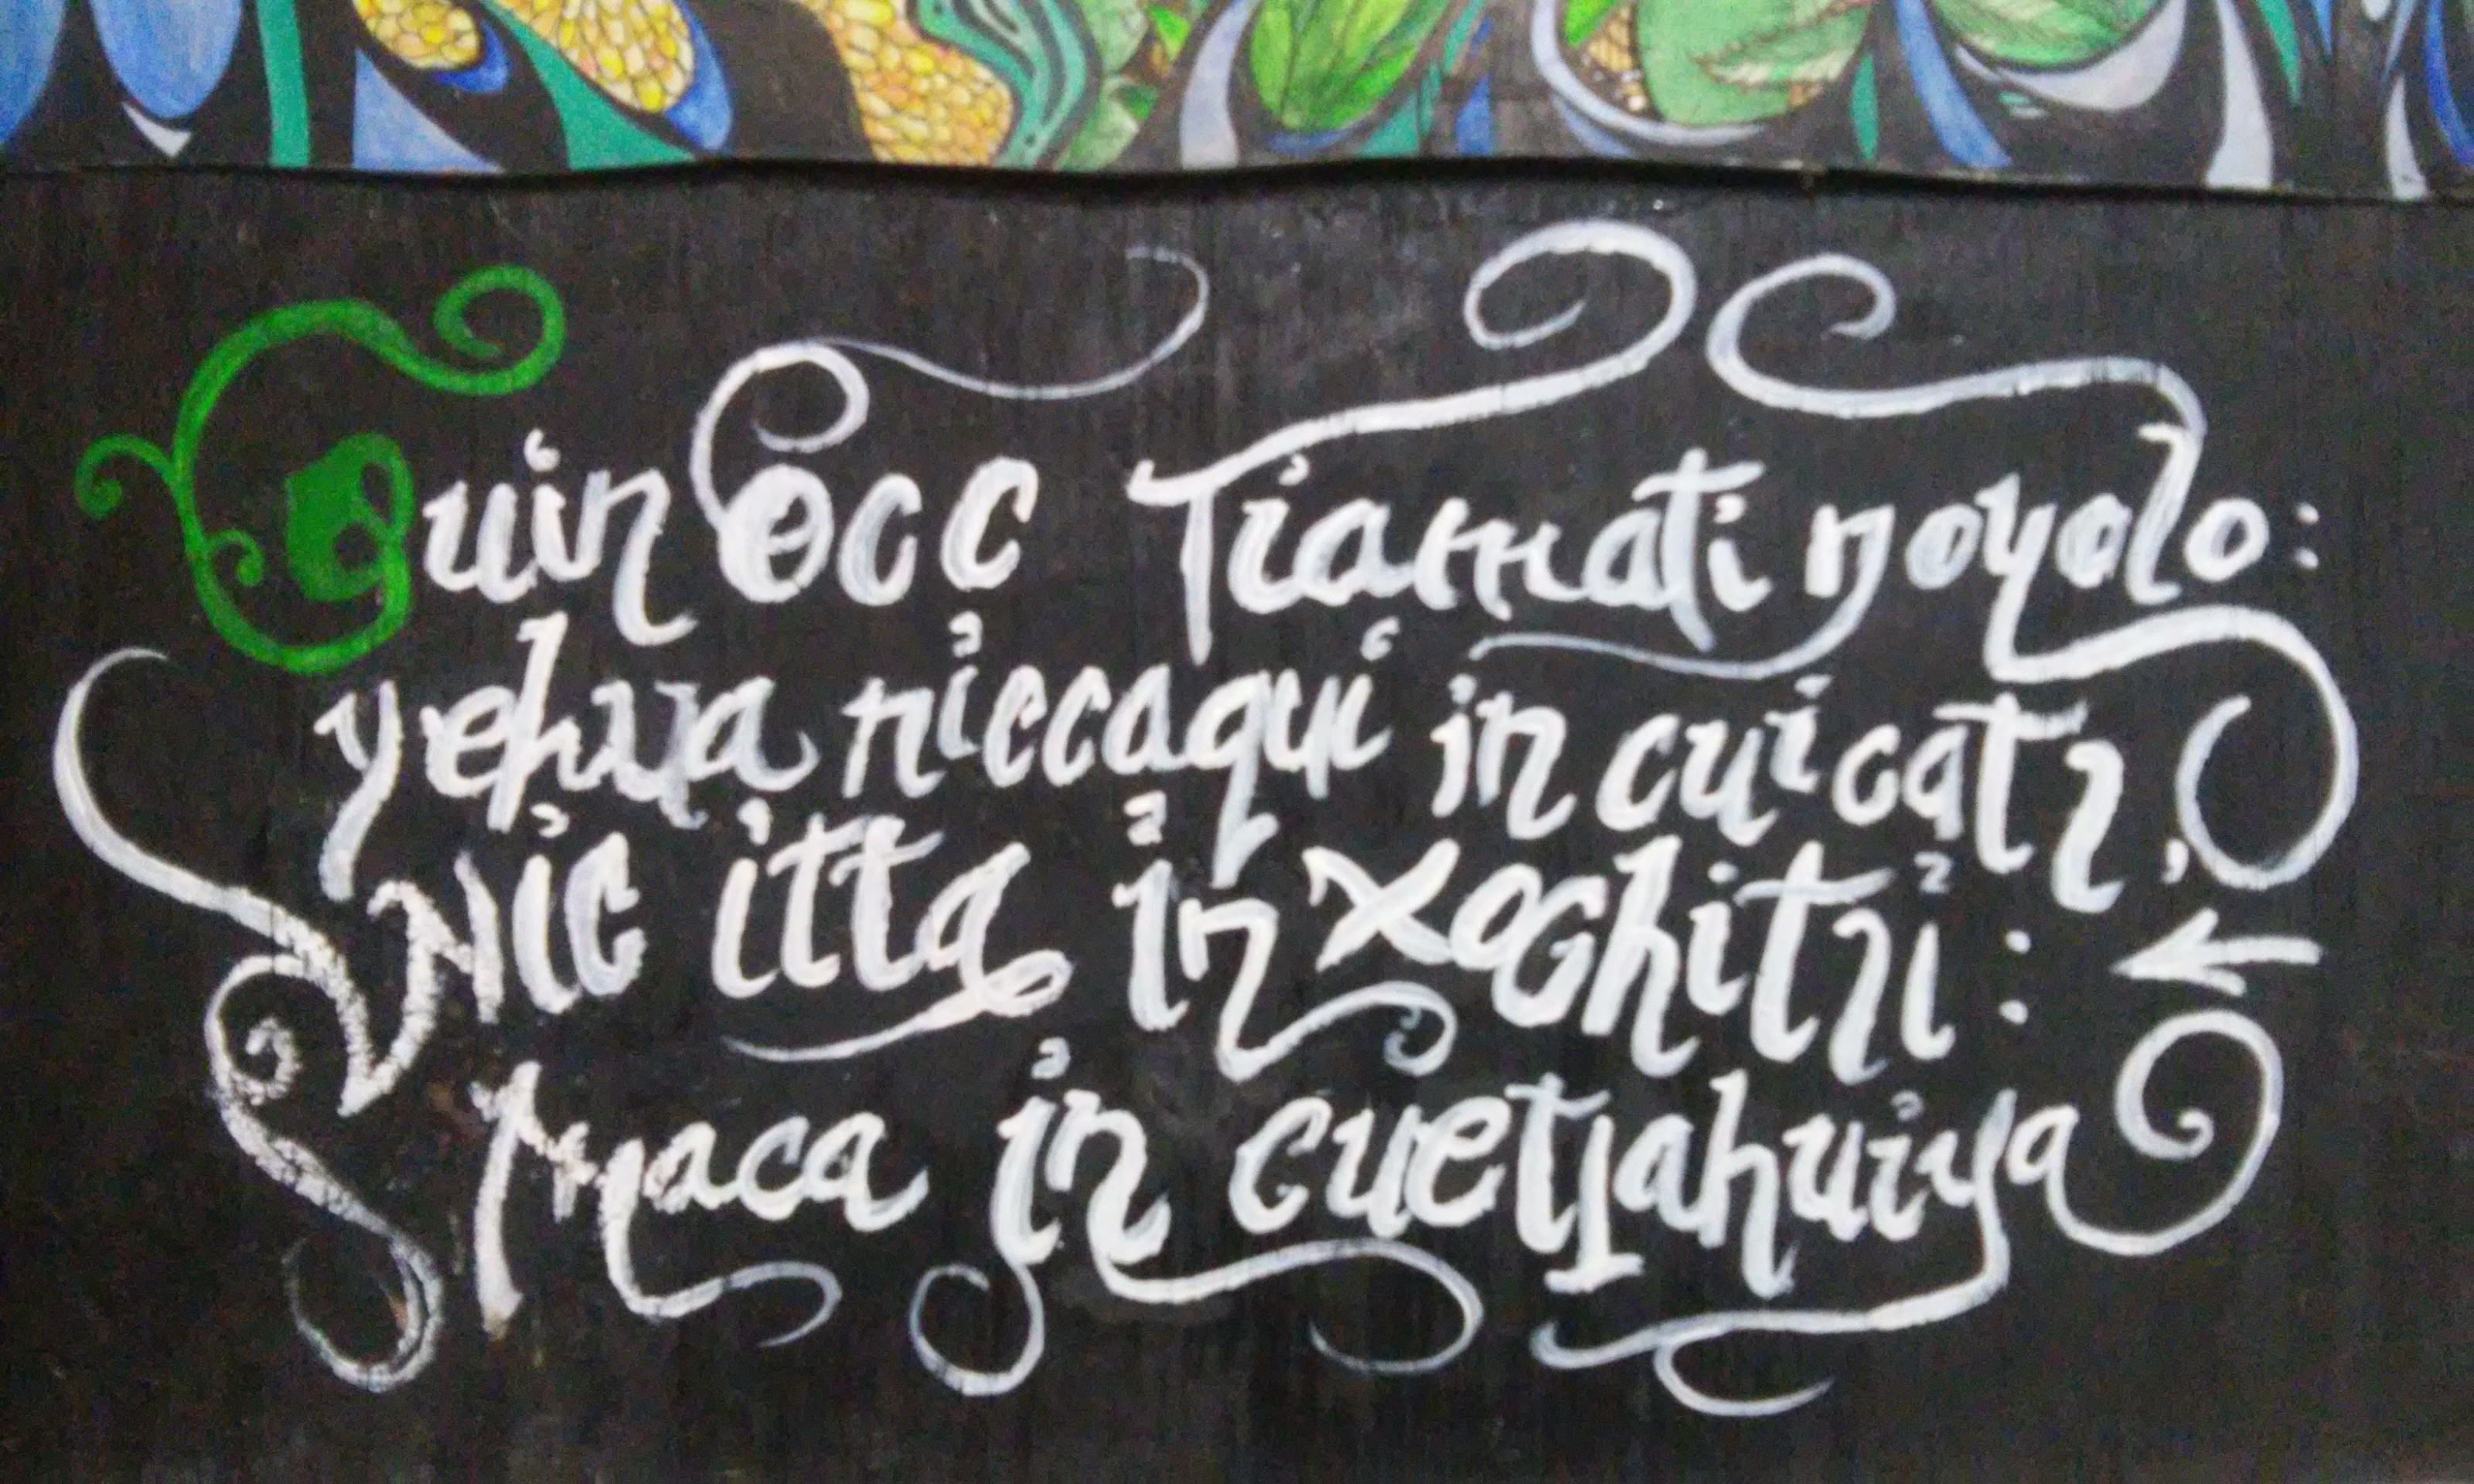 Quin Occ Tlamati noyolo:
yehua niccaqui in cuicatl,
Nic itta in xochitli:
Maca in cuetlahuiya